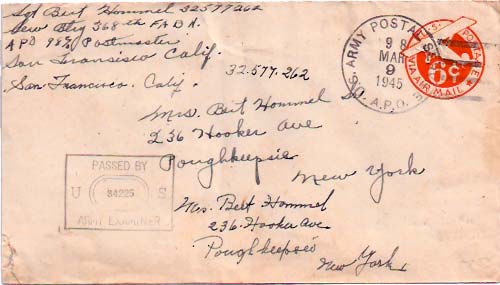 Sgt Bert Hommel 32577262
Serv Btry 368th F.A. B N.
APO 98 % Postmaster
San Fransisco Calif.
San Francisco, Calif.
32.577.262
U.S. ARMY POSTAL
98
MAR
9
1945
A.P.O.
U.S. POSTAGE
6c
VIA AIR MAIL
Mrs. Bert Hommel
236 Hooker Ave
Poughkeepsie
New York
PASSED BY
U 34225 S
ARMY EXAMINER
Mrs. Bert Hommel
236 Hooker Ave.
Poughkeepsie
New York